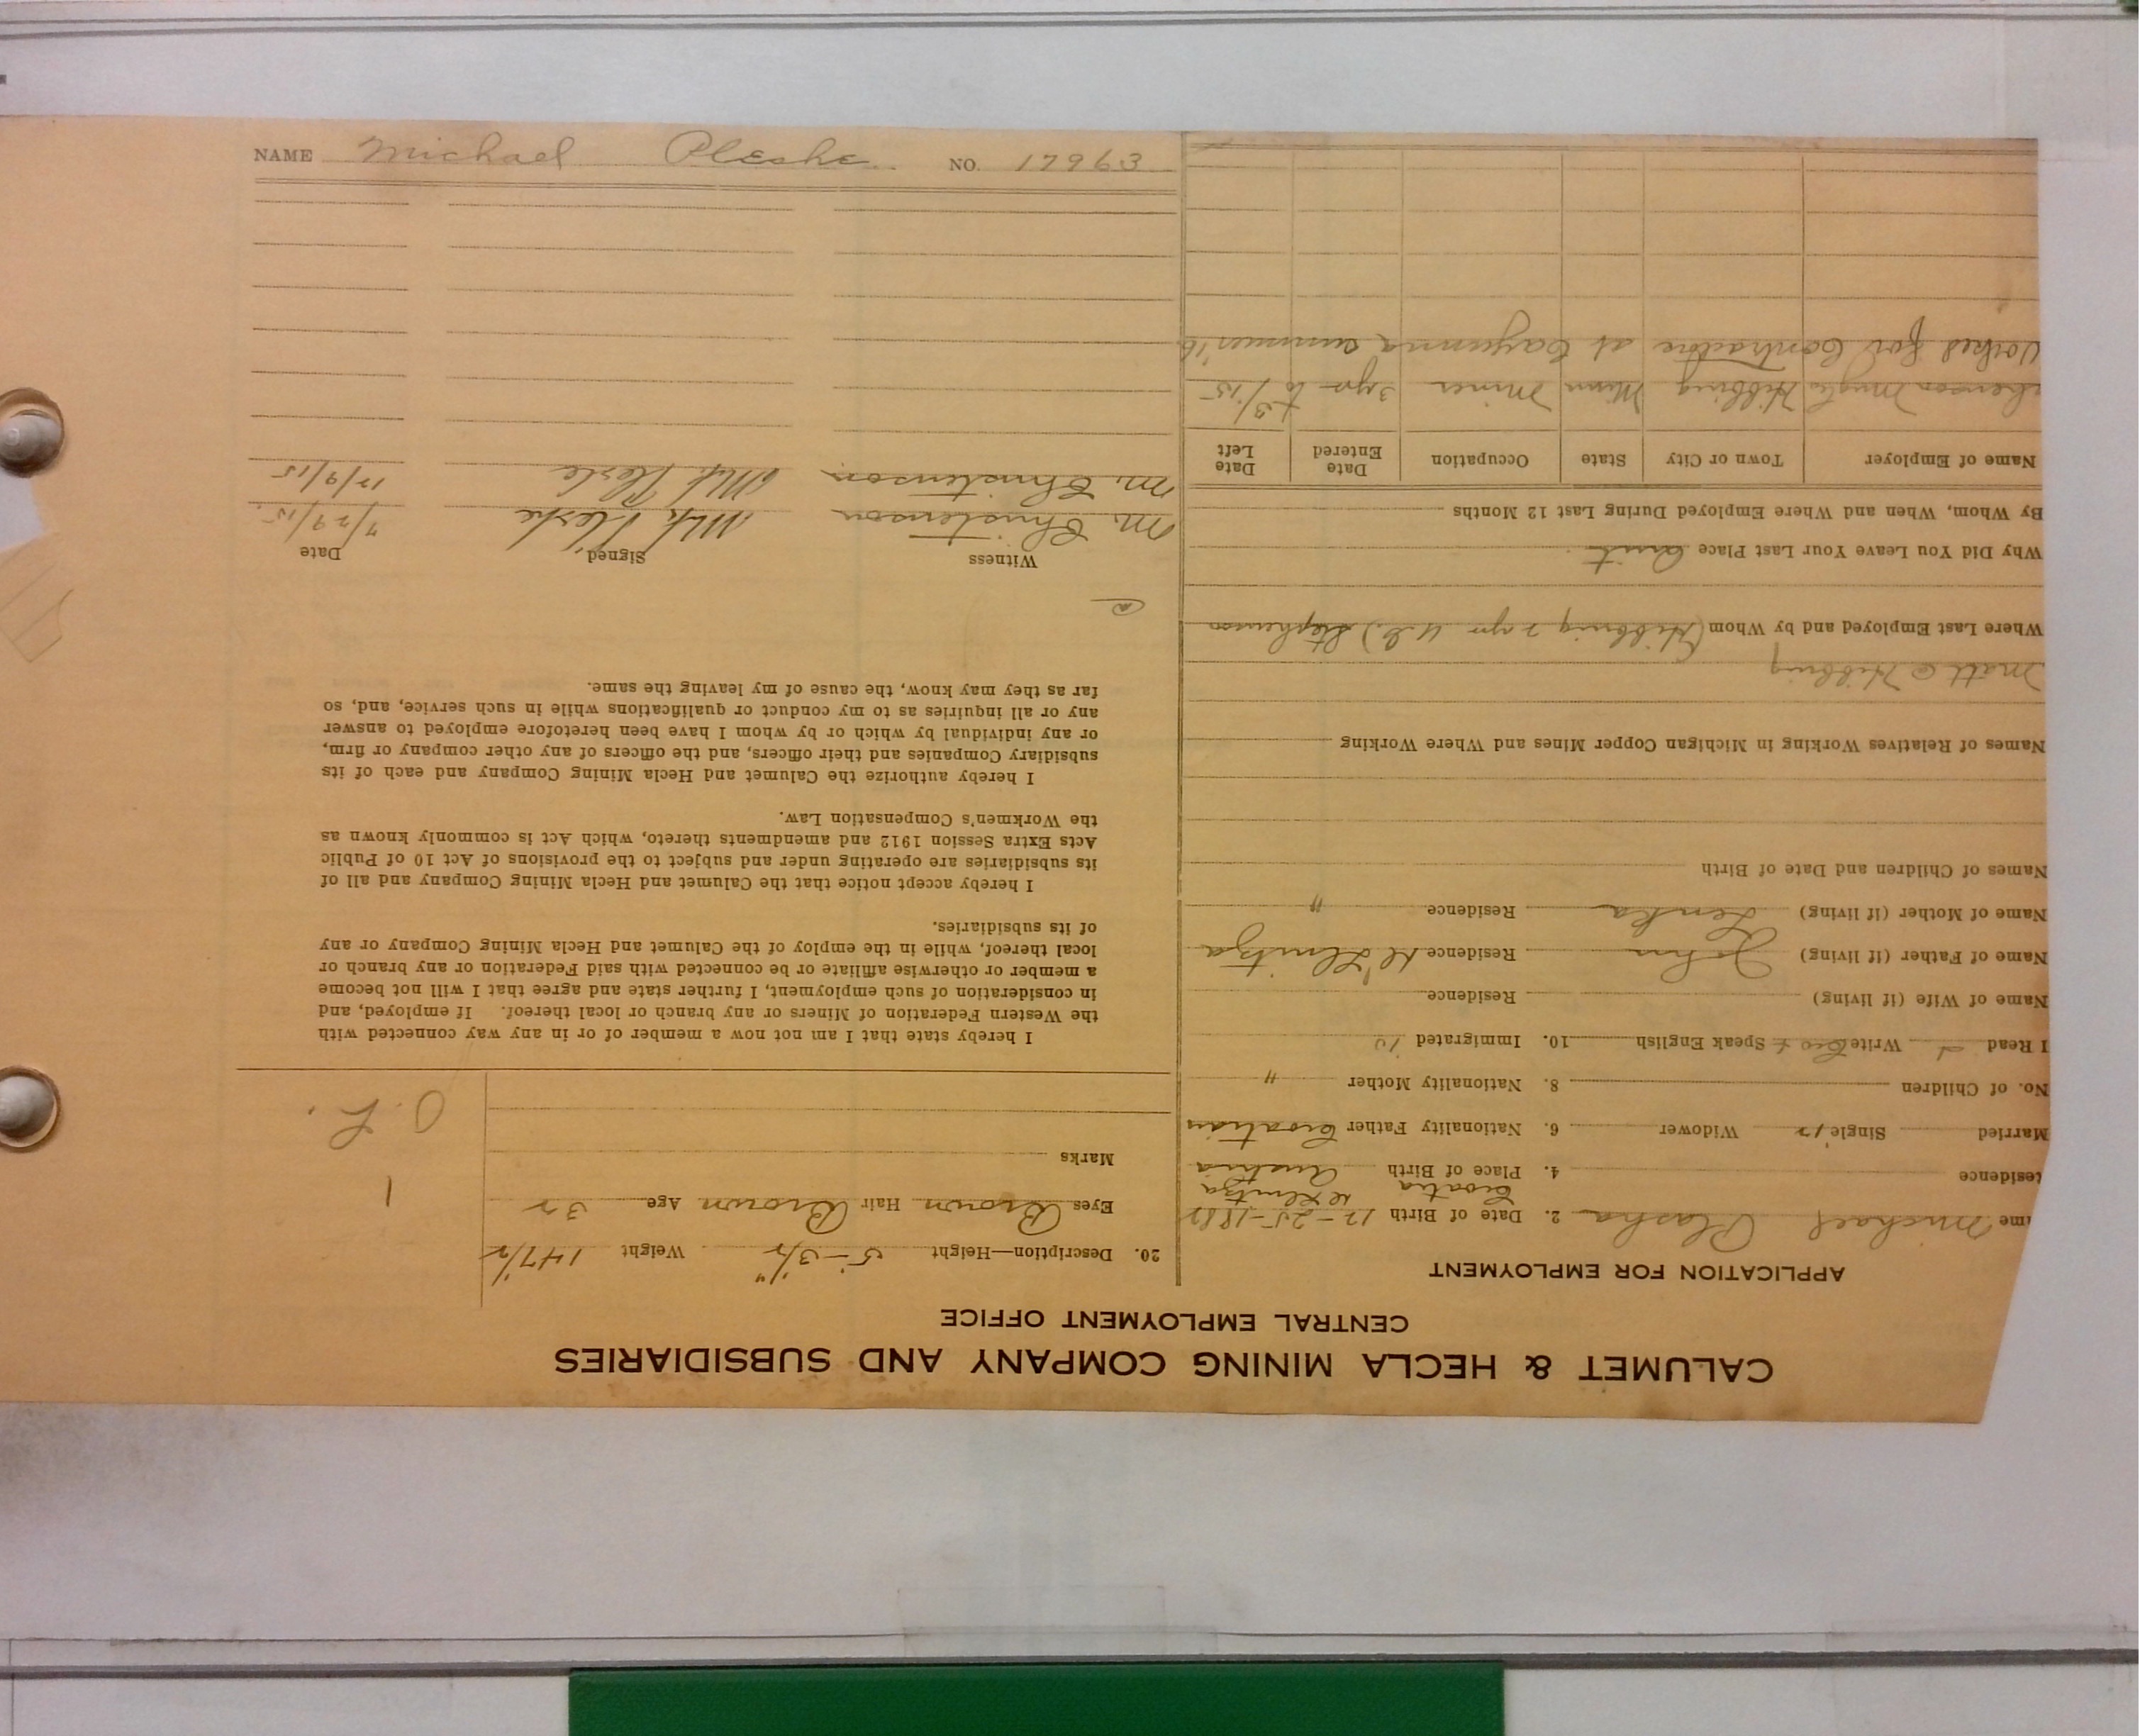 CALUMET & HECLA MINING COMPANY AND SUBSIDIARIES
CENTRAL EMPLOYMENT OFFICE
APPLICATION FOR EMPLOYMENT
me Michael Plasha 2. Date of Birth 12-25-188
Croatia
esidence 4. Place of Birth Austria
Married Single Widower 6. Nationality Father Croatian
No. of Children 8. Nationality Mother "
I Read Write Cro Speak English 10. Immigrated 10
Name of Wife (if living) Residence
Name of Father (if living) John Residence
Name of Mother (if living) Lenka Residence "
Names of Children and Date of Birth
Names of Relatives Working in Michigan Copper Mines and Where Working
Matt @ Hibbing
Where Last Employed and by Whom (Hibbing 2 yrs U.S.) Stephenson
Why Did You Leave Your Last Place Quit
By Whom, When and Where Employed During Last 12 Months
Name of Employer Town or City State Occupation Date Entered Date Left
henson Hibbing Minn Miner 3 yrs to 3/15
orked for Contractor at summer '15
20. Description—Height 5-3 1/2" Weight 147 1/2
Eyes Brown Hair Brown Age 32
Marks
1
O.L.
I hereby state that I am not now a member of or in any way connected with
the Western Federation of Miners or any branch or local thereof. If employed, and
in consideration of such employment, I further state and agree that I will not become
a member or otherwise affiliate or be connected with said Federation or any branch or
local thereof, while in the employ of the Calumet and Hecla Mining Company or any
of its subsidiaries.
I hereby accept notice that the Calumet and Hecla Mining Company and all of
its subsidiaries are operating under and subject to the provisions of Act 10 of Public
Acts Extra Session 1912 and amendments thereto, which Act is commonly known as
the Workmen's Compensation Law.
I hereby authorize the Calumet and Hecla Mining Company and each of its
subsidiary Companies and their officers, and the officers of any other company or firm,
or any individual by which or by whom I have been heretofore employed to answer
any or all inquiries as to my conduct or qualifications while in such service, and, so
far as they may know, the cause of my leaving the same.
Witness Signed Date
M. Christenson 7/29/15
M. Christenson 12/9/15
NAME Michael Pleshe NO. 17963